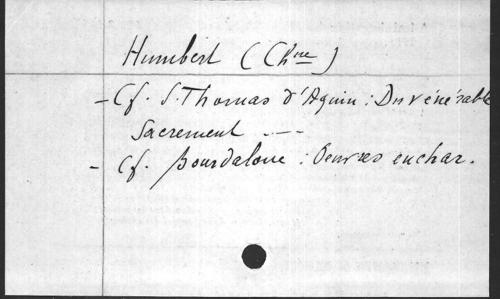 Humbert (Chne)
- Cf. S. Thomas d'Aquin : Du vénérable
Sacrement ---
- Cf. Bourdaloue : Oeuvres euchar.